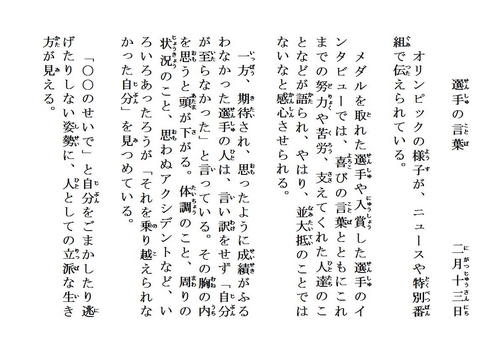 選手の言葉　二月十三日
オリンピックの様子が、ニュースや特別番
組で伝えられている。
メダルを取れた選手や入賞した選手のイ
ンタビューでは、喜びの言葉とともにこれ
までの努力や苦労、支えてくれた人達のこ
となどが語られ、やはり、並大抵のことでは
ないなと感心させられる。
一方、期待され、思ったように成績がふる
わなかった選手の人は、言い訳をせず「自分
が至らなかった」と言っている。その胸の内
を思うと頭が下がる。体調のこと、周りの
状況のこと、思わぬアクシデントなど、い
ろいろあったろうが「それを乗り越えられな
かった自分」を見つめている。
「〇〇のせいで」と自分をごまかしたり逃
げたりしない姿勢に、人としての立派な生き
方が見える。